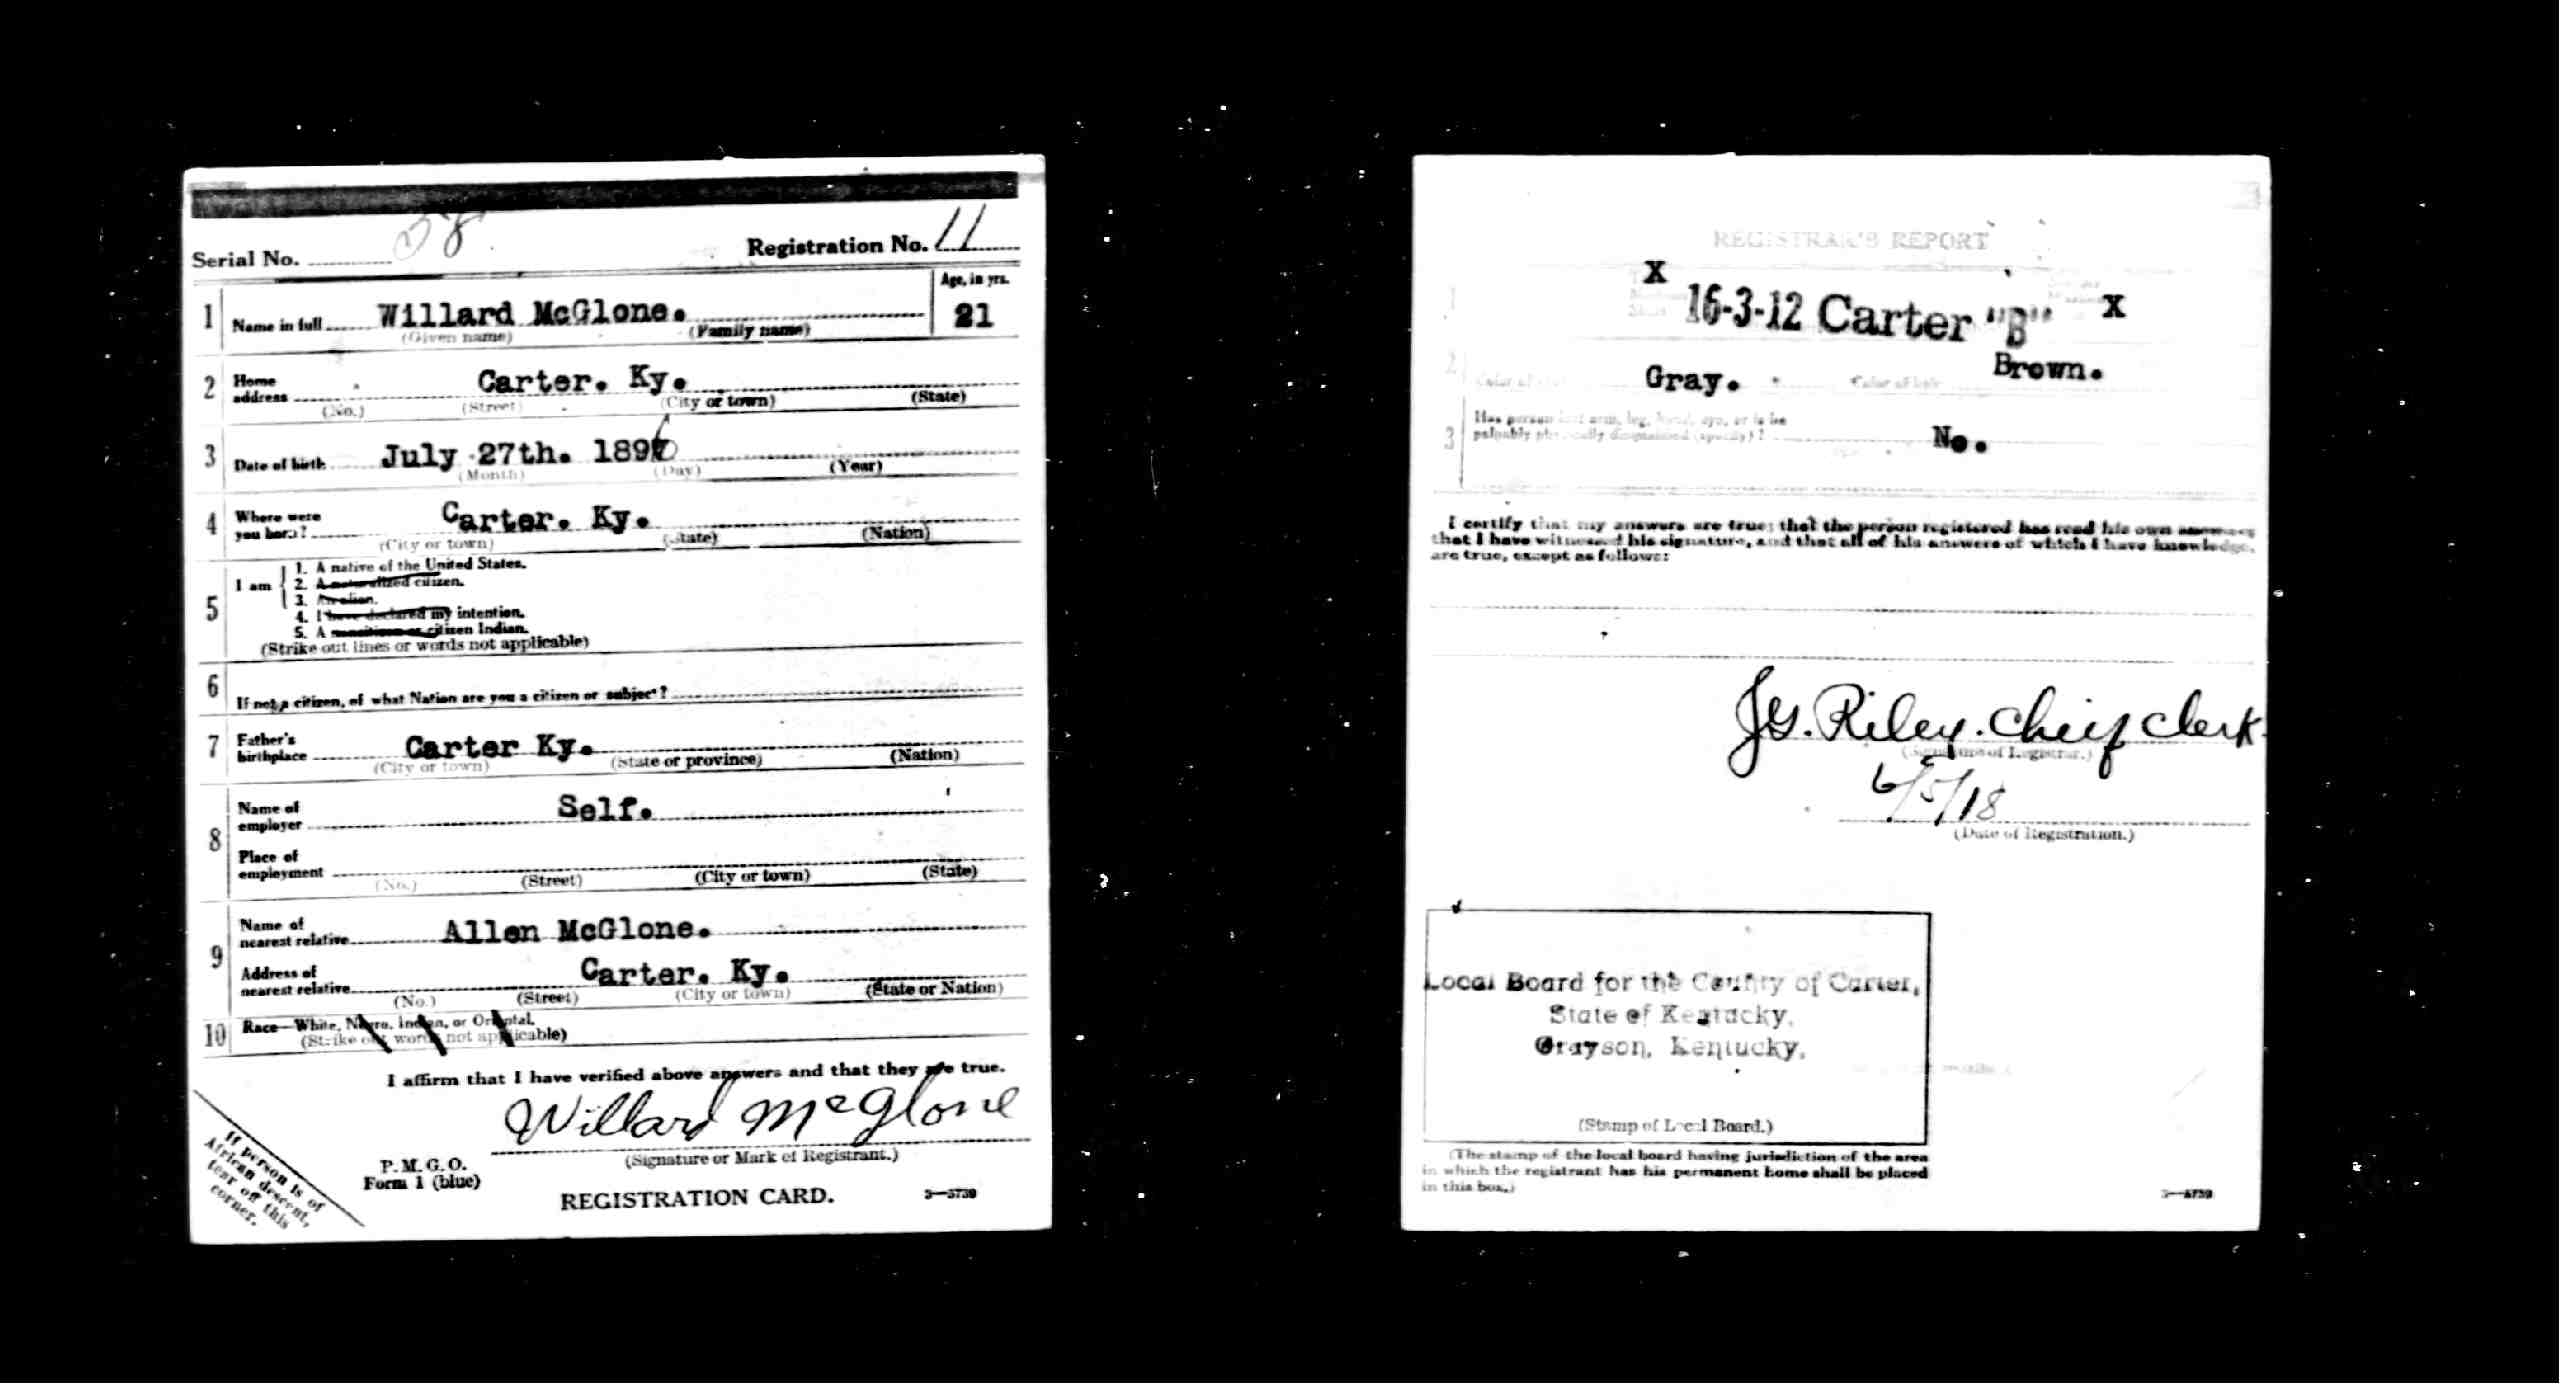 Serial No. 38
Registration No. 11
1 Name in full Willard McGlone. Age, in yrs. 21
(Given name) (Family name)
2 Home address Carter. Ky.
(No.) (Street) (City or town) (State)
3 Date of birth July 27th. 1896
(Month) (Day) (Year)
4 Where were you born? Carter. Ky.
(City or town) (State) (Nation)
5 I am
1. A native of the United States.
2. A naturalized citizen.
3. An alien.
4. I have declared my intention.
5. A noncitizen or citizen Indian.
(Strike out lines or words not applicable)
6 If not a citizen, of what Nation are you a citizen or subject?
7 Father's birthplace Carter Ky.
(City or town) (State or province) (Nation)
8 Name of employer Self.
Place of employment
(No.) (Street) (City or town) (State)
9 Name of nearest relative Allen McGlone.
Address of nearest relative Carter. Ky.
(No.) (Street) (City or town) (State or Nation)
10 Race—White, Negro, Indian, or Oriental.
(Strike out words not applicable)
I affirm that I have verified above answers and that they are true.
Willard McGlone
(Signature or Mark of Registrant.)
P. M. G. O.
Form 1 (blue)
REGISTRATION CARD.
3—5739
If person is of
African descent,
tear off this
corner.
REGISTRAR'S REPORT
X 16-3-12 Carter "B" X
1
2 Color of eyes Gray. Color of hair Brown.
3 Has person lost arm, leg, hand, eye, or is he
palpably physically disqualified (specify)? No.
I certify that my answers are true; that the person registered has read his own answers
that I have witnessed his signature, and that all of his answers of which I have knowledge,
are true, except as follows:
J.G. Riley. Chief clerk.
(Signature of Registrar.)
6/5/18
(Date of Registration.)
Local Board for the County of Carter,
State of Kentucky,
Grayson, Kentucky,
(Stamp of Local Board.)
(The stamp of the local board having jurisdiction of the area
in which the registrant has his permanent home shall be placed
in this box.)
3—5739